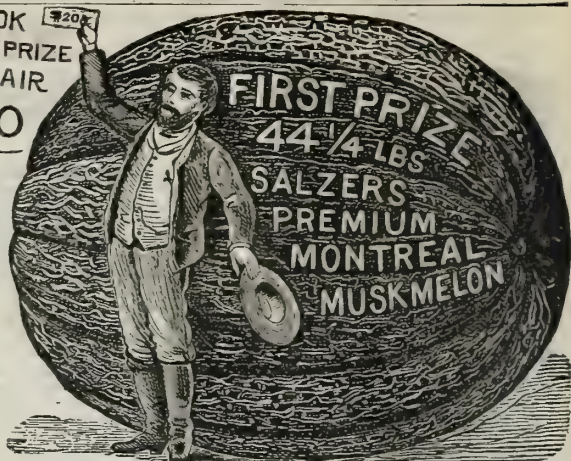 OK
PRIZE
AIR
O
$20
FIRST PRIZE
44 1/4 LBS
SALZERS
PREMIUM
MONTREAL
MUSKMELON